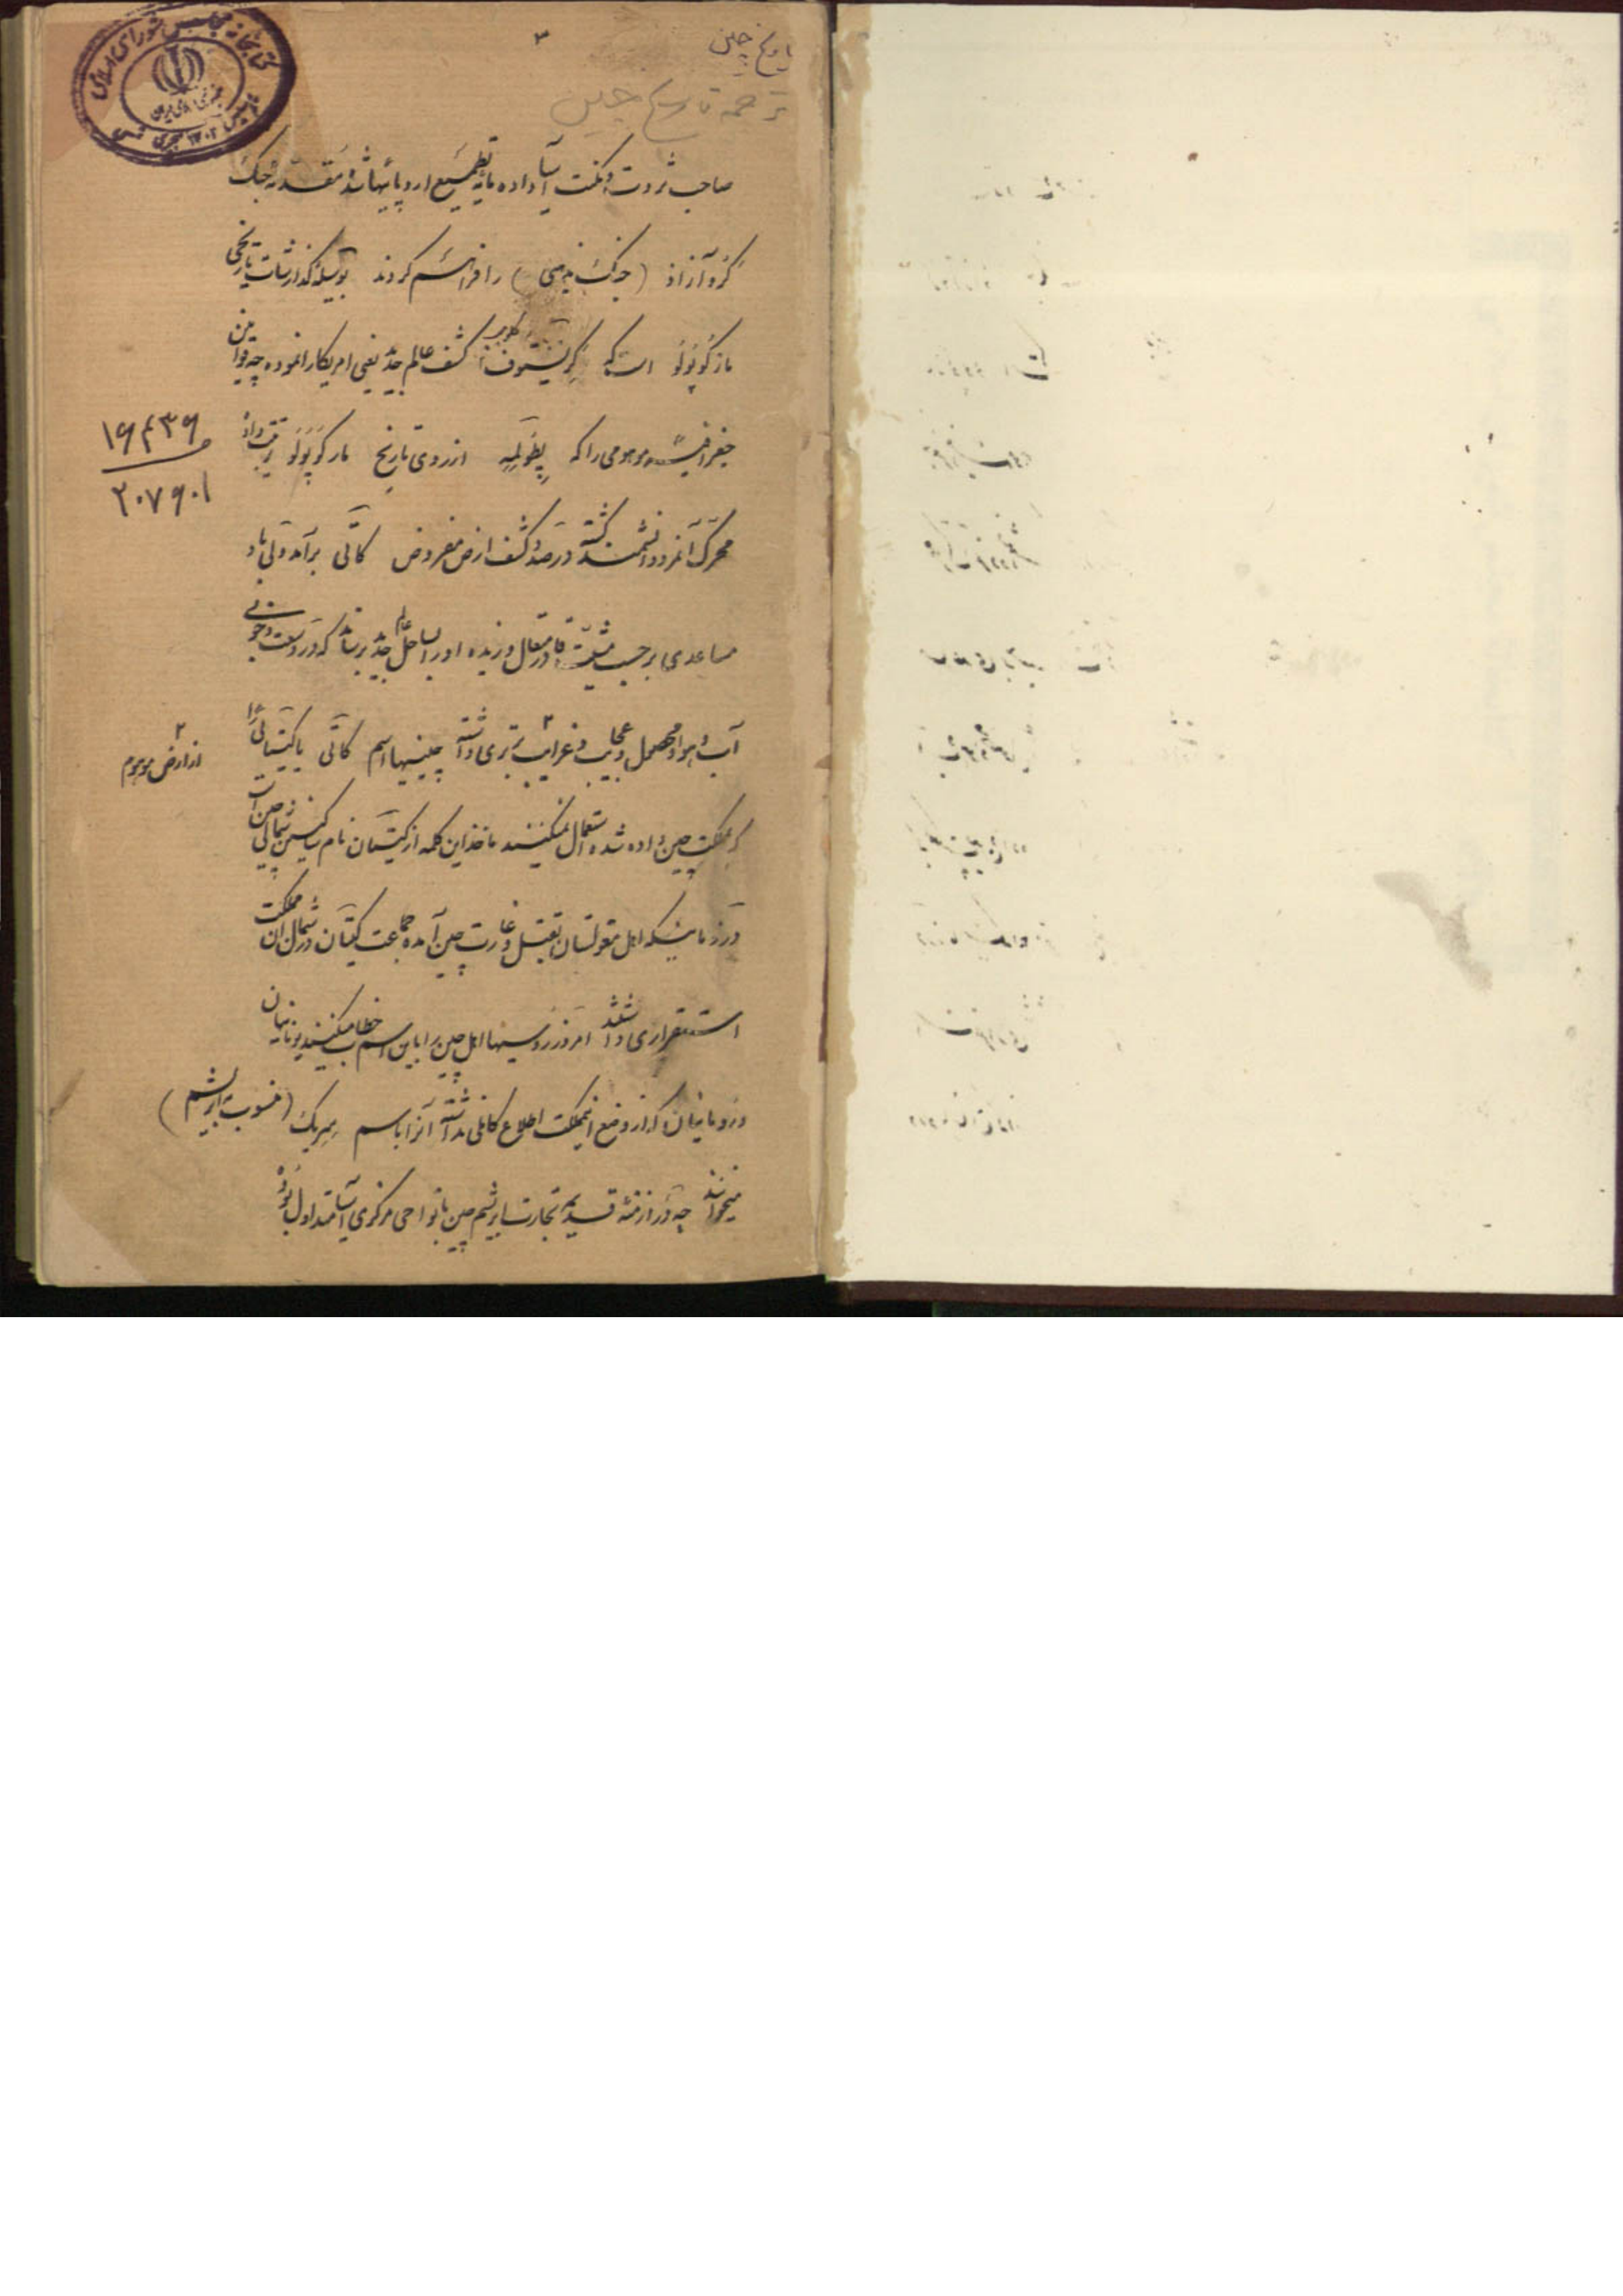 ۳
تاریخ چین
ترجمه تاریخ چین
کتابخانه مجلس شورای اسلامی
صاحب ثروت و مکنت آسیا داده مایهٔ تطمیع اروپائیها شد مقدمهٔ جنگ
کرو آزاد (جنگ مذهبی) را فراهم کردند بوسیله گذارشات تاریخی
مارکوپولو است که کریستوف کلومب کشف عالم جدید یعنی امریکا را نموده چه قوانین
جغرافیت موهومی را که پطولمه از روی تاریخ مارکوپولو ترتیب داد
۱۶۴۳۶
۲۰۷۶۰۱
محرک آنمرد دانشمند گشته در صدد کشف ارض مفروض کاتی برآمد ولی باد
مساعدی برحسب مشیت قادر متعال وزیده او را بساحل عالم جدید رساند که در وسعت و خوبی
آب و هوا و محصول و عجایب و غرایب برتری داشت چینیها اسم کاتی یا کیتائی را
۲ از ارض موهوم
که بمملکت چین داده شده استعمال نمیکنند ماخذ این کلمه از کیتان نام ساکنین شمالی چین است
در زمانیکه اهل مغولستان بقتل و غارت چین آمده جماعت کیتان در شمال آن مملکت
استقراری داشتند امروز روسیها اهل چین را باین اسم خطاب میکنند یونانیان
و رومانیان که از وضع اینمملکت اطلاع کاملی نداشته آنرا باسم سریک (منسوب بابریشم)
میخواندند چه در ازمنهٔ قدیمه تجارت ابریشم چین با نواحی مرکزی آسیا متداول بود